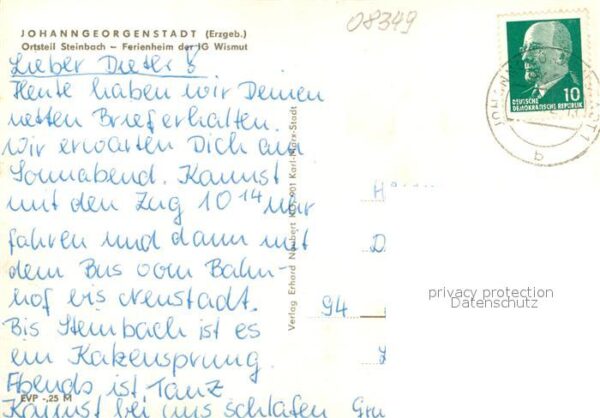 08349
JOHANNGEORGENSTADT (Erzgeb.)
Ortsteil Steinbach – Ferienheim der IG Wismut
Lieber Dieter!
Heute haben wir Deinen
netten Brief erhalten.
Wir erwarten Dich am
Sonnabend. Kannst
mit den Zug 10 14 Uhr
fahren und dann mit
dem Bus vom Bahn-
hof bis Neustadt.
Bis Steinbach ist es
ein Katzensprung.
Abends ist Tanz
Kannst bei uns schlafen Gru
EVP -,25 M
Verlag Erhard Neubert KG, 901 Karl-Marx-Stadt
10
DEUTSCHE
DEMOKRATISCHE REPUBLIK
b
H
D
94
privacy protection
Datenschutz